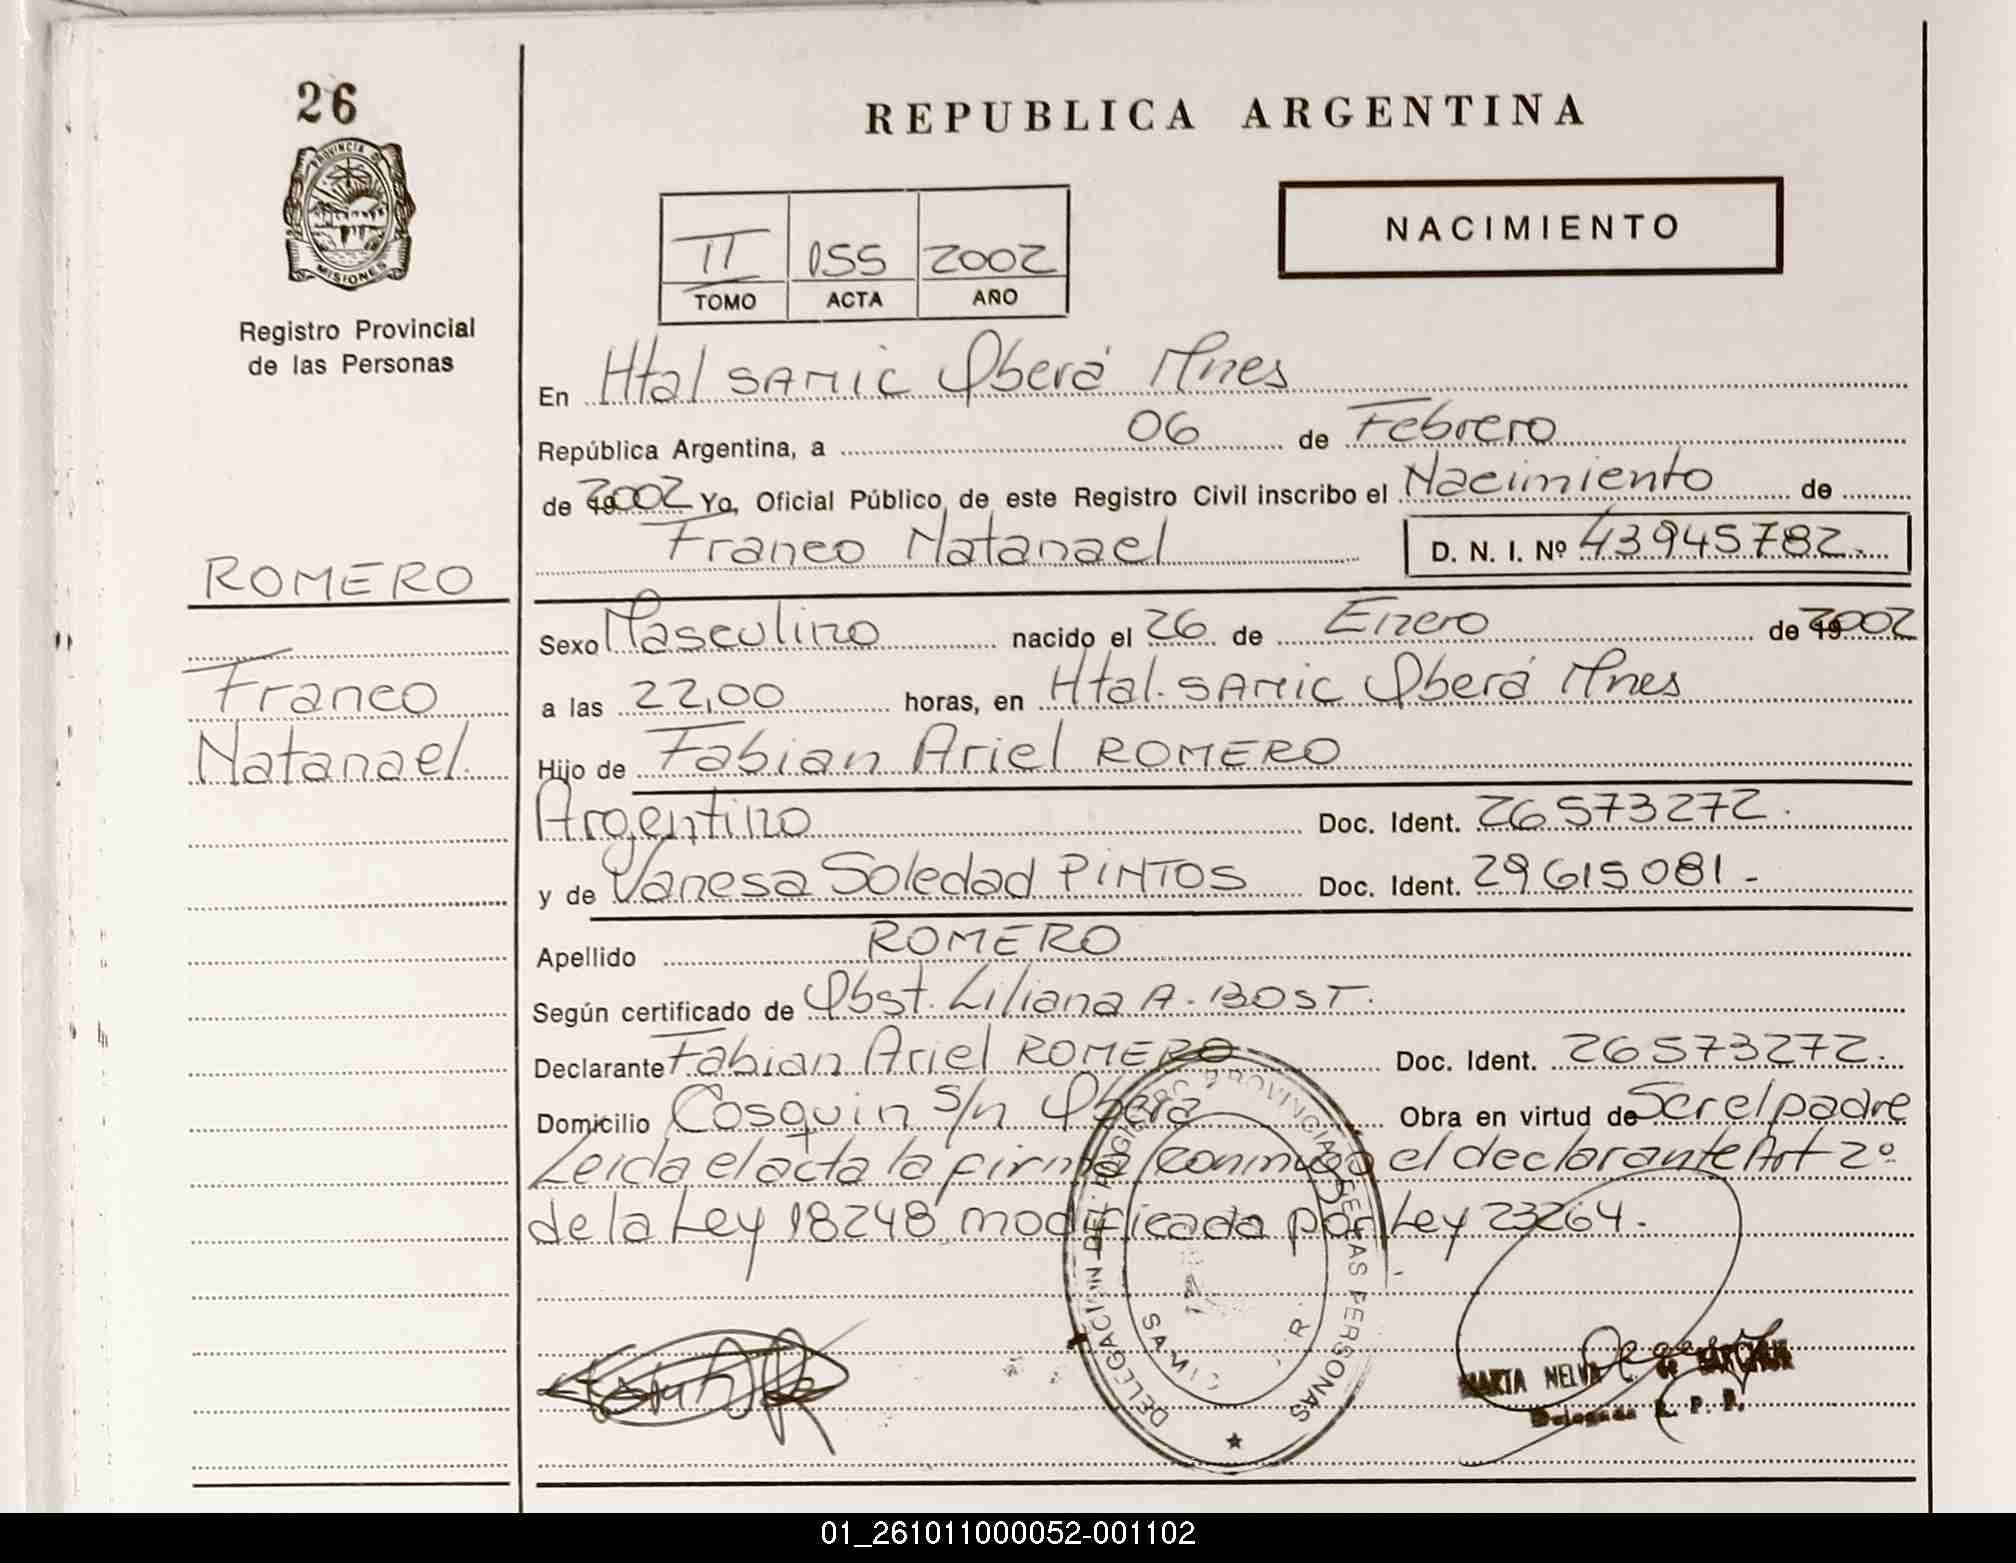 26
PROVINCIA DE
MISIONES
Registro Provincial
de las Personas
ROMERO
Franco
Natanael.
REPUBLICA ARGENTINA
NACIMIENTO
II 055 2002
TOMO ACTA AÑO
En Htal SAMIC Oberá Mnes
República Argentina, a 06 de Febrero
de 2002 Yo, Oficial Público de este Registro Civil inscribo el Nacimiento de
Franco Natanael D. N. I. Nº 43945782.
Sexo Masculino nacido el 26 de Enero de 2002
a las 22,00 horas, en Htal. SAMIC Oberá Mnes
Hijo de Fabian Ariel ROMERO
Argentino Doc. Ident. 26573272.
y de Vanesa Soledad PINTOS Doc. Ident. 29615081-
Apellido ROMERO
Según certificado de Obst. Liliana A. BOST.
Declarante Fabian Ariel ROMERO Doc. Ident. 26573272.
Domicilio Cosquin s/n Oberá Obra en virtud de Ser el padre
Leida el acta la firma conmigo el declarante Art 2º
de la Ley 18248 modificada por Ley 23264.
DELEGACION DEL REGISTRO PROVINCIAL DE LAS PERSONAS
SAMIC
MARTA NELVA C. de
Delegada R. P. P.
01_261011000052-001102